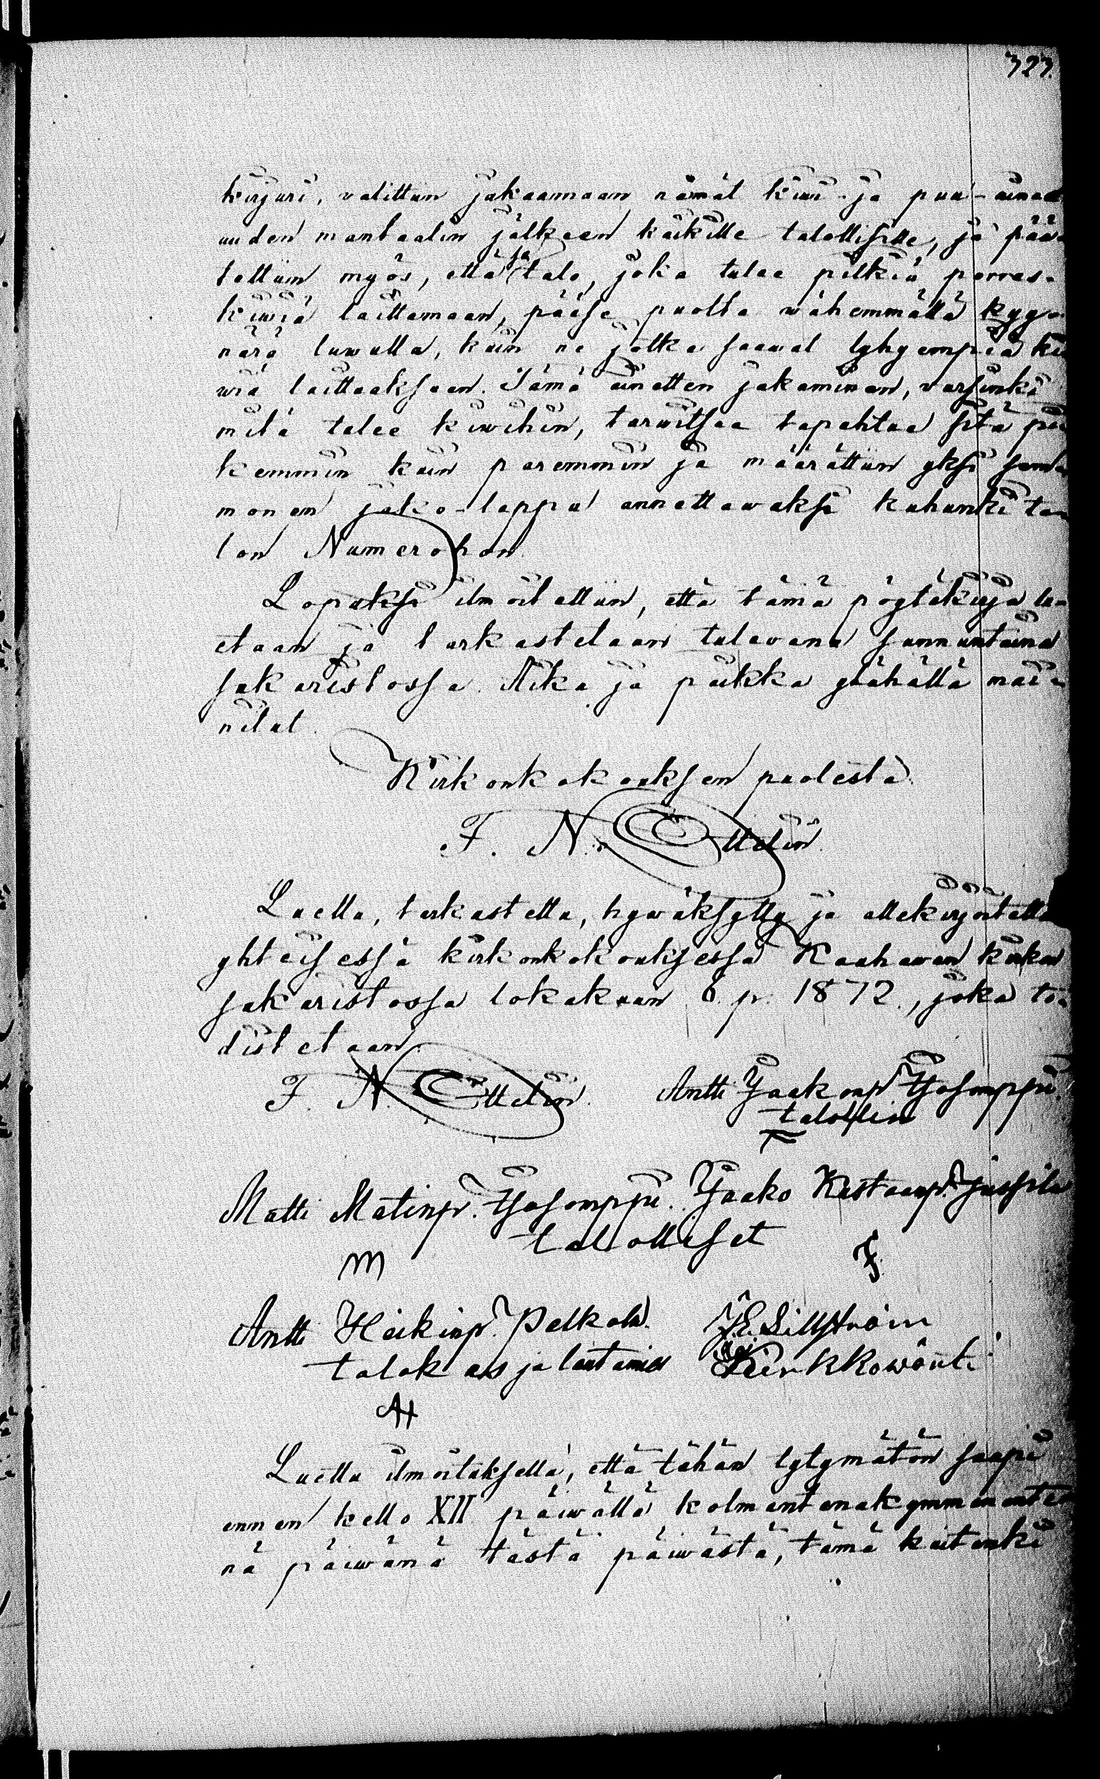 323.
kirjuri, valittiin jakaamaan nämät kiwi- ja puu-ainee
uuden mantaalin jälkeen kaikille talollisille, ja pää-
tettiin myös, että se talo, joka tulee pitkiä porras-
kiwiä laittamaan, pääse puolta wähemmällä kyyn
närä luwulla, kuin ne jotka saawat lyhyempiä ki
wiä laittaaksaan. Tämä ainetten jakaminen, varsinki
mitä tulee kiwihin, tarwitsee tapahtua sitä pi
kemmin kuin paremmin ja määrättiin yksi
monen jako-lappu annettawaksi kuhunki ta
lon Numerohon.
Lopuksi ilmoitettiin, että tämä pöytäkirja lu-
etaan ja tarkastetaan tulevana sunnuntaina
sakaristossa. Aika ja paikka ylähällä mai-
nitut.
Kirkonkokouksen puolesta
F. N. Ottelin.
Luettu, tarkastettu, hywäksytty ja allekirjoitettu
yhteisessä kirkonkokouksessa Kauhawan kirkon
sakaristossa lokakuun 6 p. 1872, joka to-
distetaan.
F. N. Ottelin. Antti Jaakonp. Ypsomppu.
talollin
Matti Matinp. Ypsomppu. Jaako Kustaanp. Jussila
talolliset
M J
Antti Heikinp. Pelkola. J E Lillström
talokas ja lautamies Kirkkowäärti
AH
Luettu ilmoituksella, että tähän tytymätön saapi
ennen kello XII päiwällä kolmantenakymmenente
nä päiwänä tästä päiwästä, tämä kuitenki